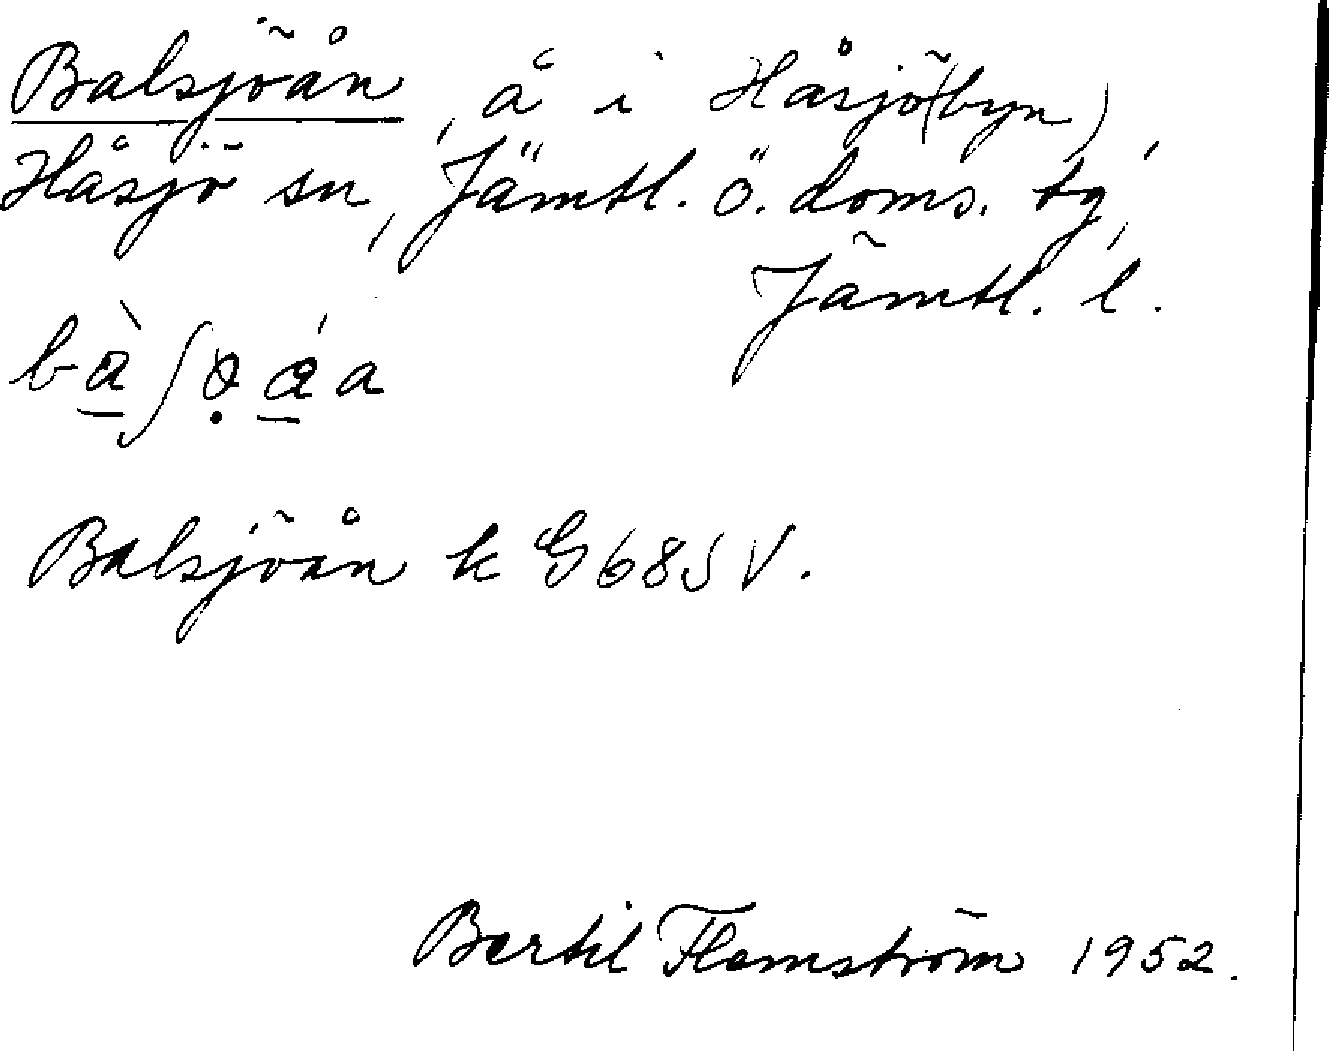 Balsjöån, å i Håsjö(byn),
Håsjö sn, Jämtl. ö. doms. tg,
Jämtl. l.
Balsjöån k G 685 V.
Bertil Flemström 1952.